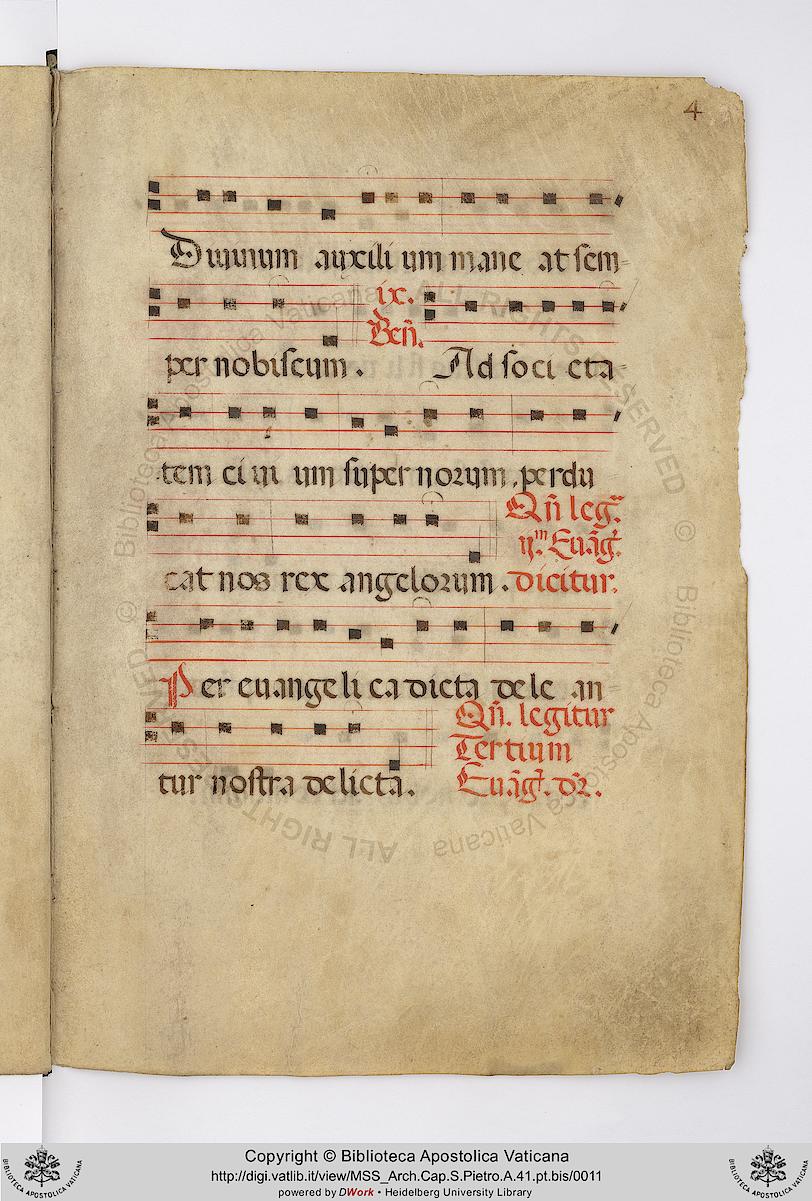 4
Diuinum auxili um mane at sem-
ix.
Ben̄.
per nobiscum. Ad soci eta-
tem ci ui um supernorum. perdu
Qn̄ leg.r
u.m Euāg.
cat nos rex angelorum. dicitur.
Per euangeli ca dicta dele an-
Qn̄. legitur
tur nostra delicta. Tertium
Euāg. dr̄.
© Biblioteca Apostolica Vaticana ALL RIGHTS RESERVED
© Biblioteca Apostolica Vaticana ALL RIGHTS RESERVED
Copyright © Biblioteca Apostolica Vaticana
http://digi.vatlib.it/view/MSS_Arch.Cap.S.Pietro.A.41.pt.bis/0011
powered by DWork • Heidelberg University Library
BIBLIOTECA APOSTOLICA VATICANA
BIBLIOTECA APOSTOLICA VATICANA